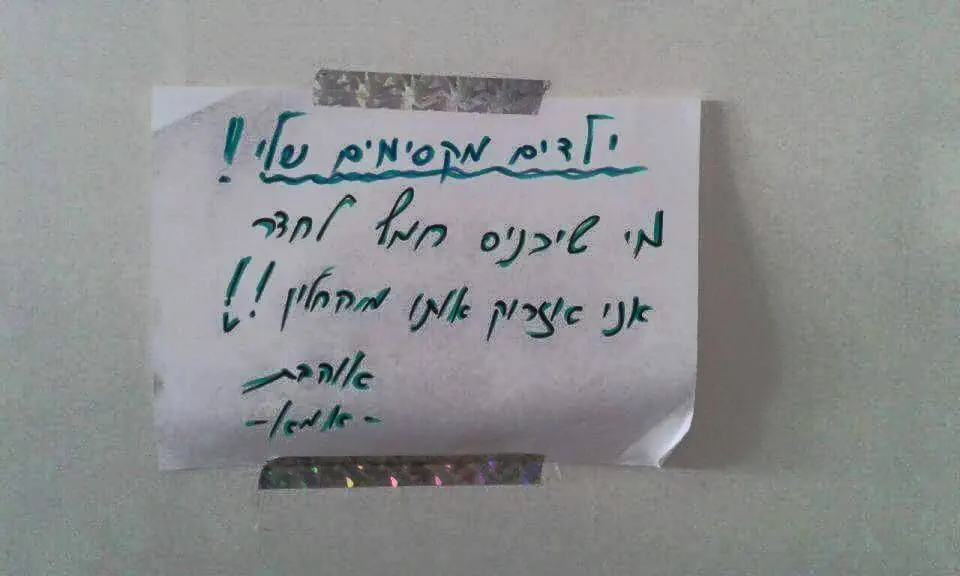 ילדים מקסימים שלי!
מי שיכניס חמץ לחדר
אני אזרוק אותו מהחלון!!
אוהבת
-אמא-